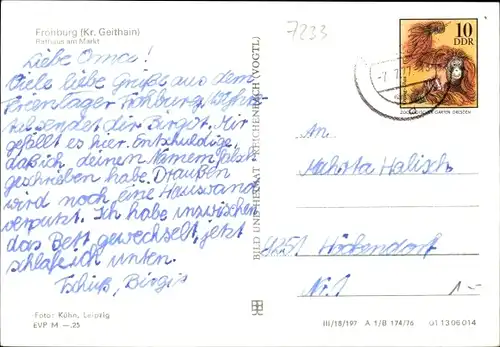 Frohburg (Kr. Geithain)
Rathaus am Markt
7233
10
DDR
ZOOLOGISCHER GARTEN DRESDEN
Liebe Omca!
Viele liebe Grüße aus dem
Ferienlager Frohburg,
sendet dir Birgit. Mir
gefällt es hier. Entschuldige,
daß ich deinen Namem falsch
geschrieben habe. Draußen
wird noch eine Hauswand
verputzt. Ich habe inzwischen
das Bett gewechselt, jetzt
schlafe ich unten.
Tschüß, Birgit
BILD UND HEIMAT REICHENBACH (VOGTL)
An
Halisch
9251
Nr. 1
1-
Foto: Kühn, Leipzig
EVP M —.25
III/18/197 A 1/B 174/76 01 13 06 014